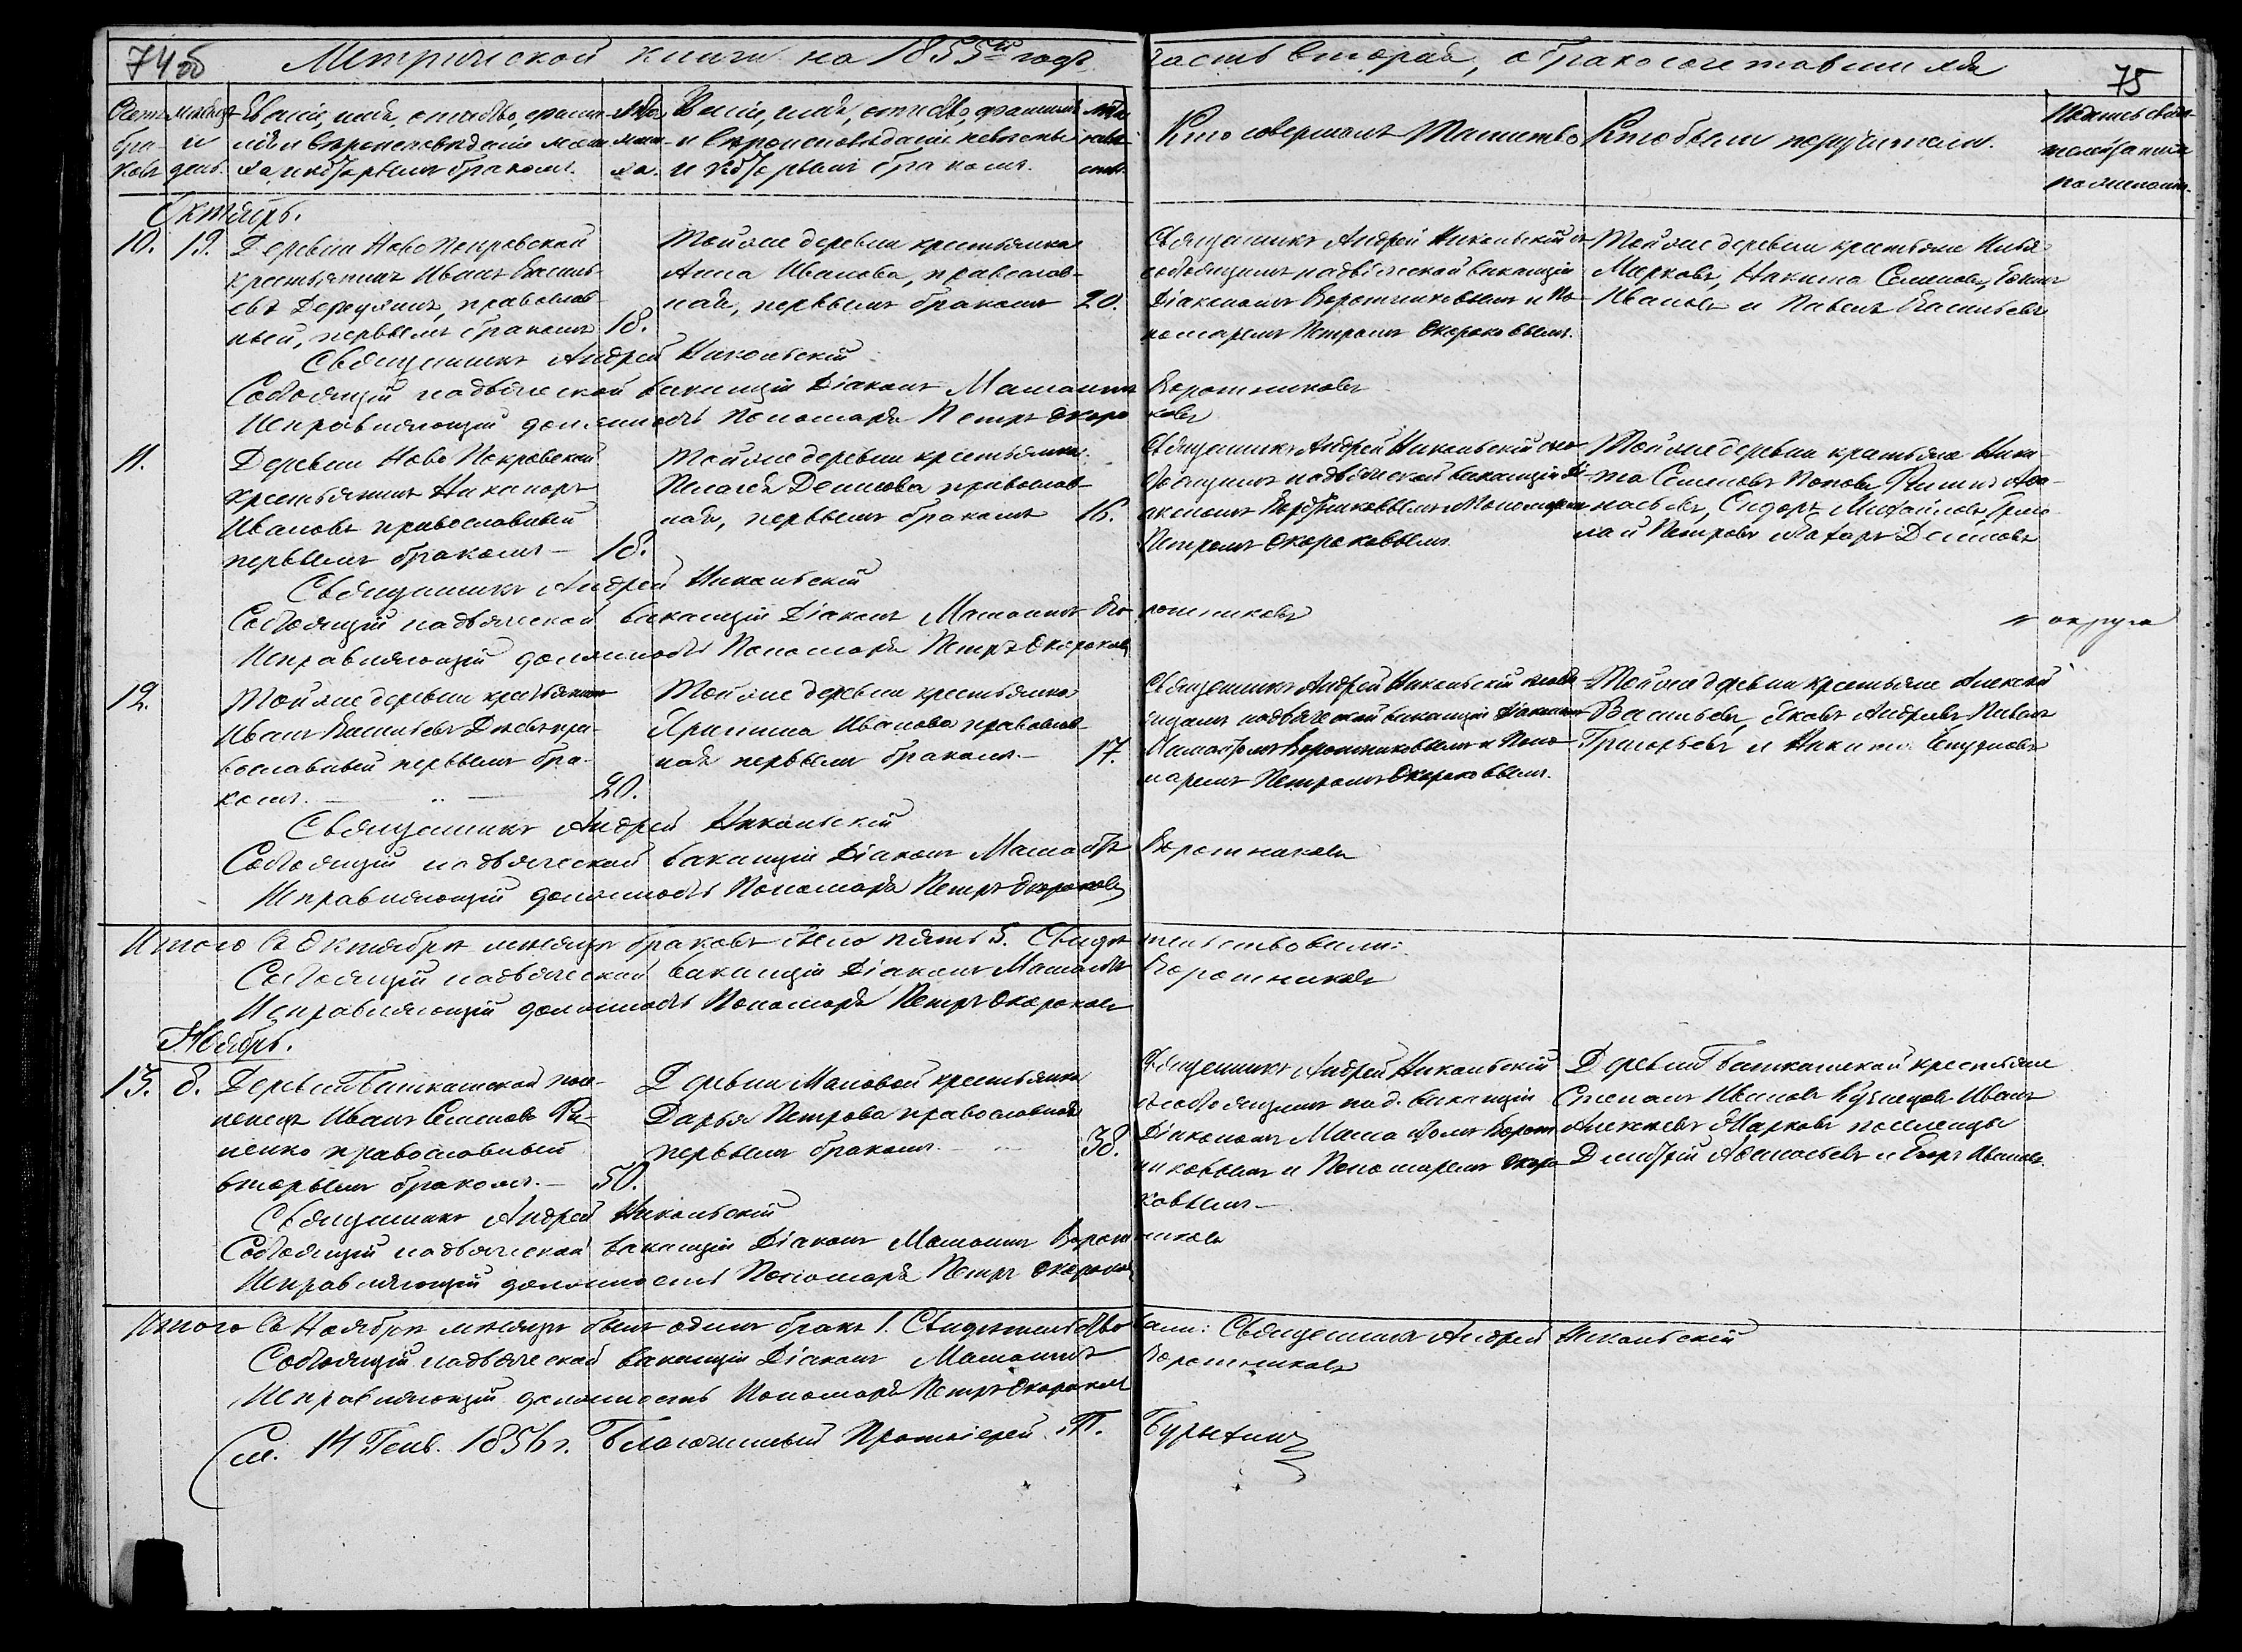 74 об
Метрической книги на 1855й годъ часть вторая, о бракосочетавшихся
75
Счетъ браковъ
Мѣсяцъ и день.
Званіе, имя, отчество, фамилія и вѣроисповѣданіе жениха, и которымъ бракомъ.
Лѣта жениха.
Званіе, имя, отчество, фамилія и вѣроисповѣданіе невѣсты и которымъ бракомъ.
Лѣта невѣсты.
Кто совершалъ Таинство
Кто были поручители.
Октябрь.
10. 19.
Деревни Ново Покровской
крестьянинъ Иванъ Василь-
евъ, православ-
ный, первымъ бракомъ 18.
Той же деревни крестьянка
Анна Иванова, православ-
ная, первымъ бракомъ 20.
Священникъ Андрей Никольскій съ
состоящимъ на дьяческой вакансіи
Діакономъ Воротниковымъ и По-
номаремъ Петромъ Окороковымъ.
Той же деревни крестьяне
Марковъ, Никита Семеновъ,
Ивановъ и Павелъ Васильевъ
Священникъ Андрей Никольскій
Состоящій на дьяческой вакансіи Діаконъ Воротниковъ
Исправляющій должность Пономаря Петръ Окороковъ
11.
Деревни Ново Покровской
крестьянинъ Никаноръ
Ивановъ православный
первымъ бракомъ – 18.
Той же деревни крестьянка
Пелагея Денисова православ-
ная, первымъ бракомъ 16.
Священникъ Андрей Никольскій со
стоящимъ на дьяческой вакансіи Ді-
акономъ Воротниковымъ и Пономаремъ
Петромъ Окороковымъ
Той же деревни крестьяне Ники-
та Семеновъ Поповъ, Филипъ Афа-
насьевъ, Сидоръ Михайловъ,
Петровъ Денисовъ
Священникъ Андрей Никольскій
Состоящій на дьяческой вакансіи Діаконъ Воротниковъ
Исправляющій должность Пономаря Петръ Окороковъ
12.
Той же деревни крестьянинъ
Иванъ Васильевъ пра-
вославный первымъ бра-
комъ. – 20.
Той же деревни крестьянка
Ирина Иванова православ-
ная первымъ бракомъ. – 17.
Священникъ Андрей Никольскій
на дьяческой вакансіи Діакономъ
Воротниковымъ и Поно-
маремъ Петромъ Окороковымъ.
Той же деревни крестьяне Алексѣй
Васильевъ, Яковъ Андреевъ, Павелъ
Григорьевъ и Никита
Священникъ Андрей Никольскій
Состоящій на дьяческой вакансіи Діаконъ Воротниковъ
Исправляющій должность Пономаря Петръ Окороковъ
Итого въ Октябрѣ мѣсяцѣ браковъ было пять 5. Свидѣтельствовали:
Состоящій на дьяческой вакансіи Діаконъ Воротниковъ
Исправляющій должность Пономаря Петръ Окороковъ
Ноябрь.
13. 8.
посе-
ленецъ Иванъ Семеновъ
православный
вторымъ бракомъ. – 50.
Деревни Маловой крестьянка
Дарья Петрова православная
первымъ бракомъ. 38.
Священникъ Андрей Никольскій
съ состоящимъ на д. вакансіи
Діакономъ Ворот-
никовымъ и Пономаремъ Окоро-
ковымъ –
крестьяне
Степанъ Ивановъ Кузнецовъ Иванъ
Алексѣевъ Марковъ поселенцы
Дмитрій Афанасьевъ и Егоръ Ивановъ.
Священникъ Андрей Никольскій
Состоящій на дьяческой вакансіи Діаконъ Воротниковъ
Исправляющій должность Пономаря Петръ Окороковъ
Итого въ Ноябрѣ мѣсяцѣ былъ одинъ бракъ 1. Свидѣтельствовали: Священникъ Андрей Никольскій
Состоящій на дьяческой вакансіи Діаконъ Воротниковъ
Исправляющій должность Пономаря Петръ Окороковъ
См. 14 Генв. 1856 г. Благочинный Протоіерей П.